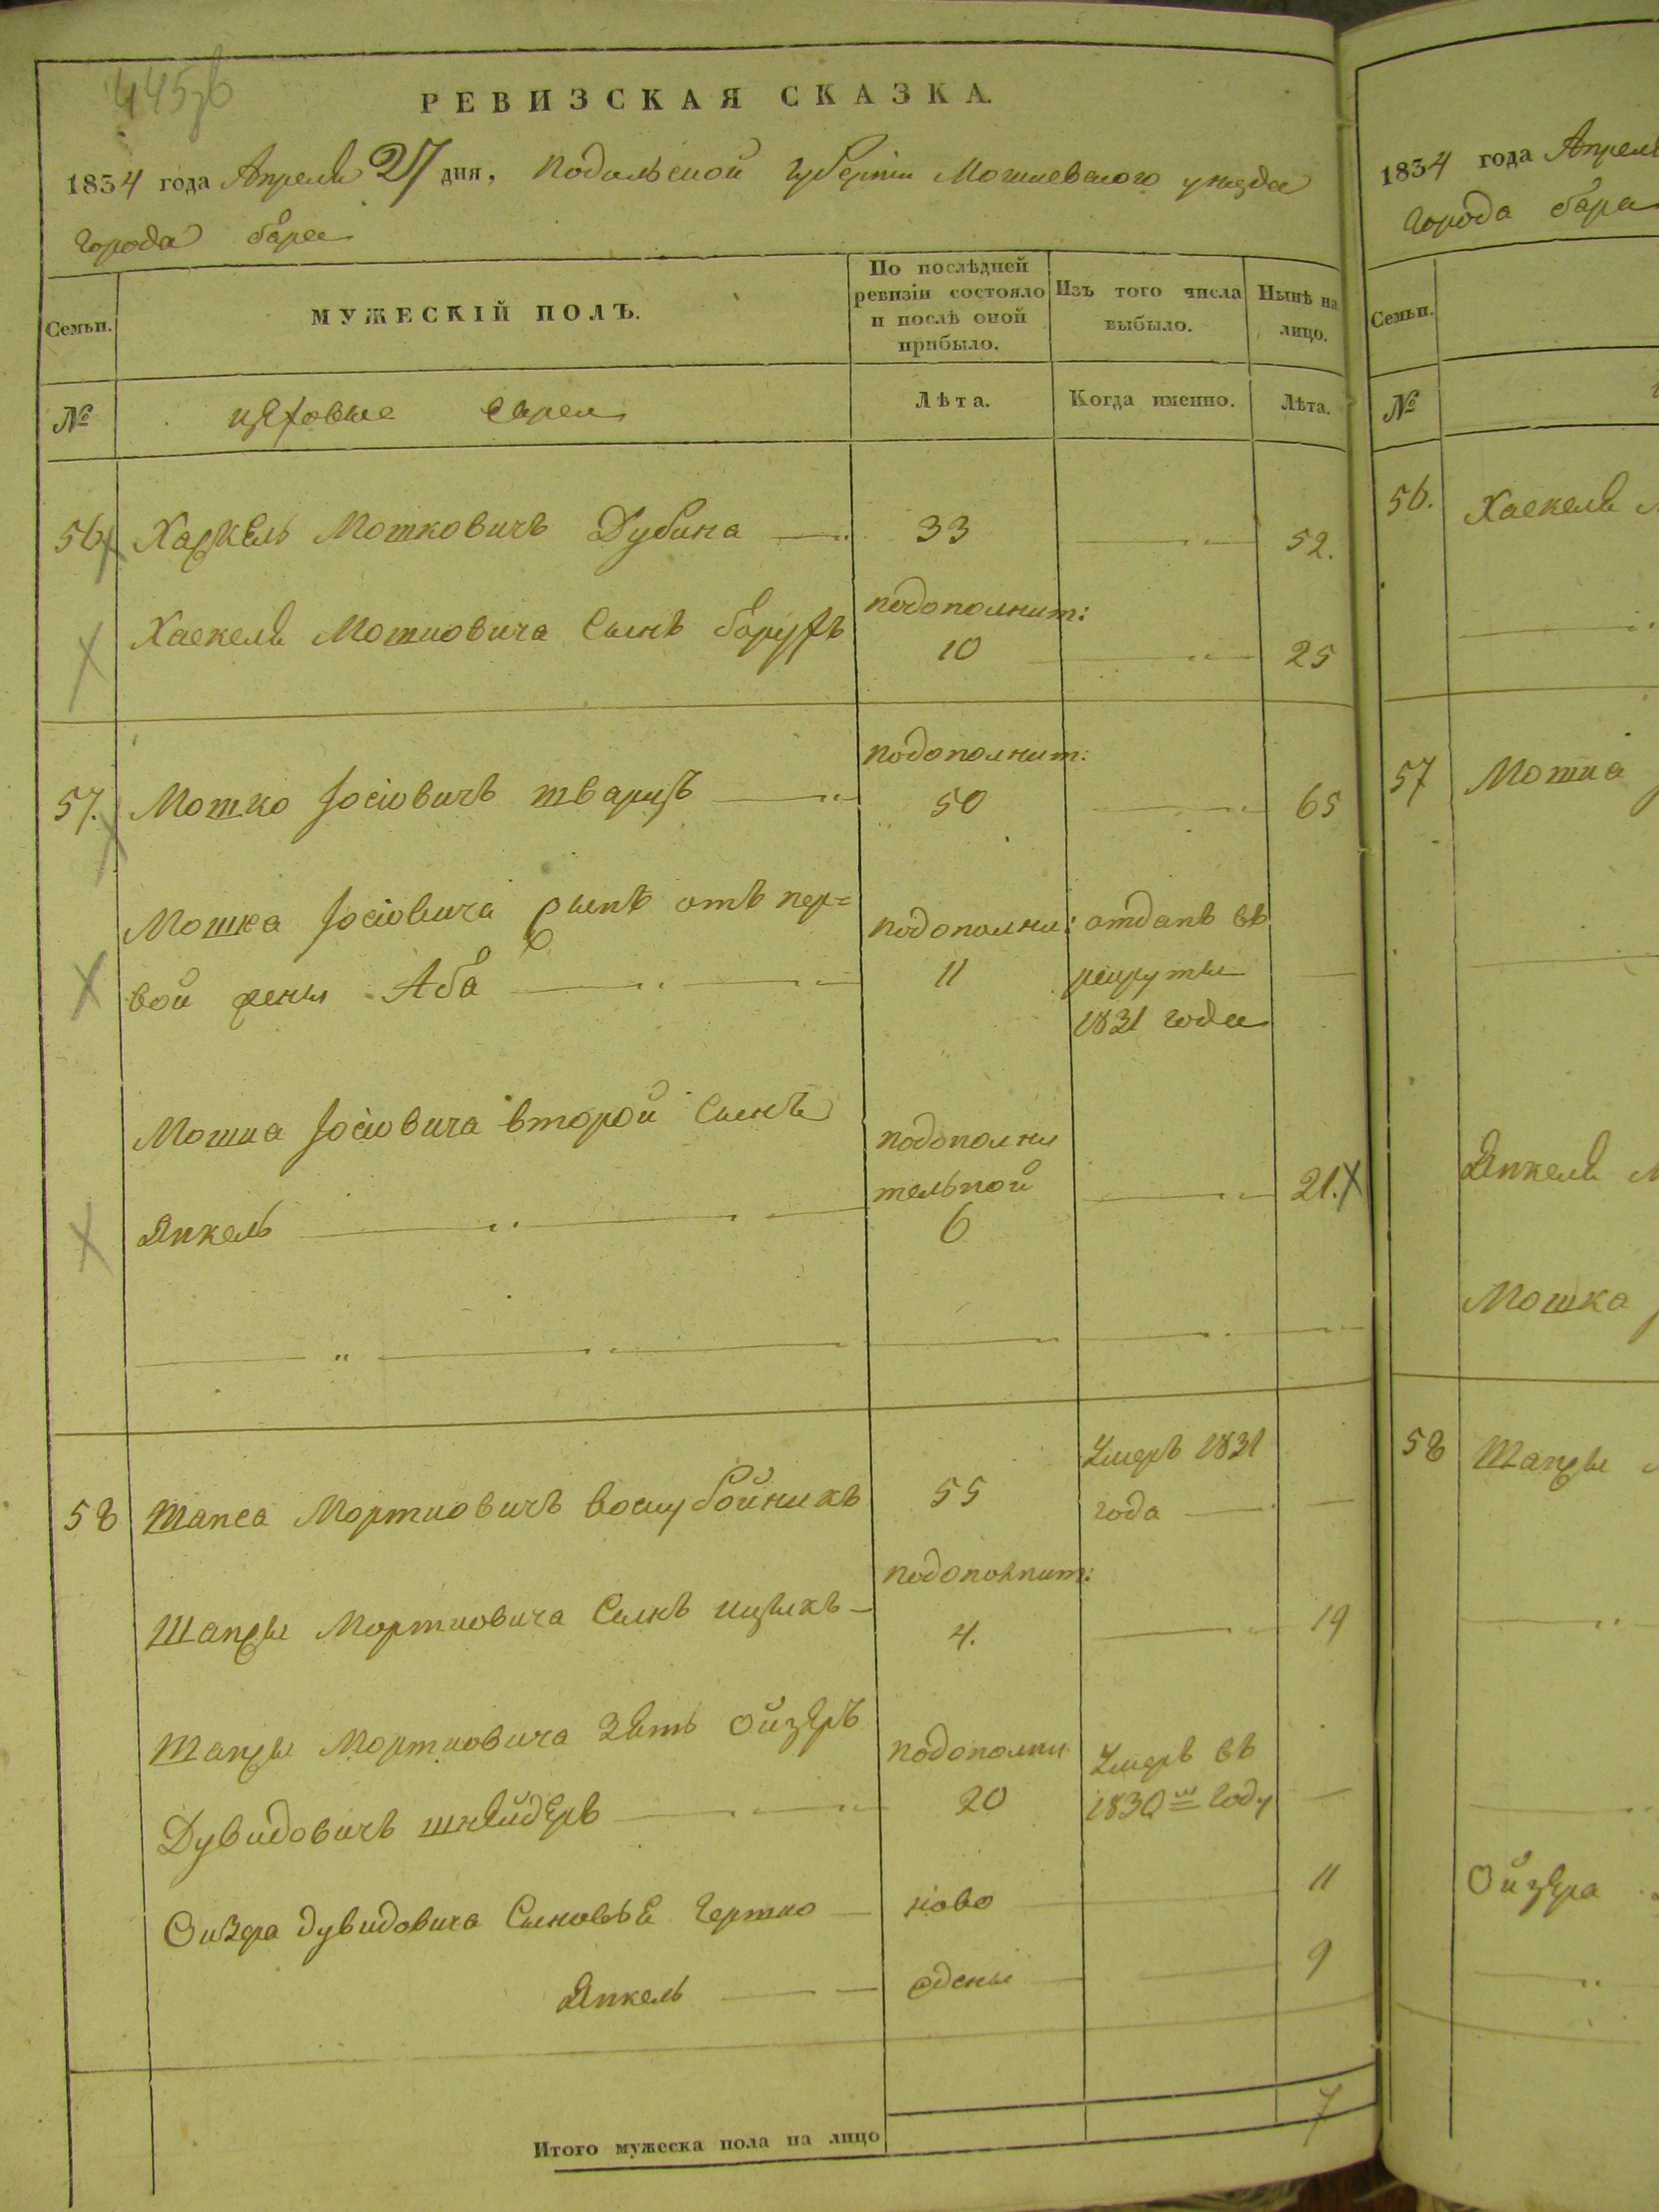 445зб
РЕВИЗСКАЯ СКАЗКА.
1834 года Апреля 27 дня, Подольской Губерніи Могилевского уезда
Города бара
Семьи. МУЖЕСКІЙ ПОЛЪ. По послѣдней ревизіи состояло и послѣ оной прибыло. Изъ того числа выбыло. Нынѣ на лицо.
№ цеховые евреи Лѣта. Когда именно. Лѣта.
56 Хаскель Мошковичъ Дубина 33 52.
подополнит:
Хаскеля Мошковича Сынъ борухъ 10 25
подополнит:
57. Мошко Іосіовичъ тваризъ 50 65
Мошка Іосіовича Сынъ отъ пер=
вой жены Аба
подополни:
11
отданъ въ
рекруты
1831 года
Мошка Іосіовича второй Сынъ
Янкель
подополни
тельной
6
21.
58 Шапса Мортковичъ воскубойникъ 55
Умеръ 1831
года
подополнит:
Шапсы Мортковича Сынъ ицыкъ 4. 19
Шапсы Мортковича Зять Ойзеръ
Дувидовичъ шнейдеръ
подополни
20
Умеръ въ
1830м Году
Ойзера дувидовича Сыновья Гертко ново 11
Янкель
9
Итого мужеска пола на лицо 7
1834 года Апреля
Города бара
Семьи.
№
56. Хаскеля
57 Мошка
Янкеля
Мошка
58 Шапсы
Ойзера